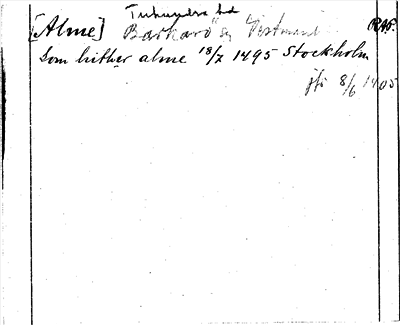 Tuhundra hd
[Alme] Barkarö sn Vestmanl RAP.
Som hither alme 18/7 1495 Stockholm
jfr 8/6 1405